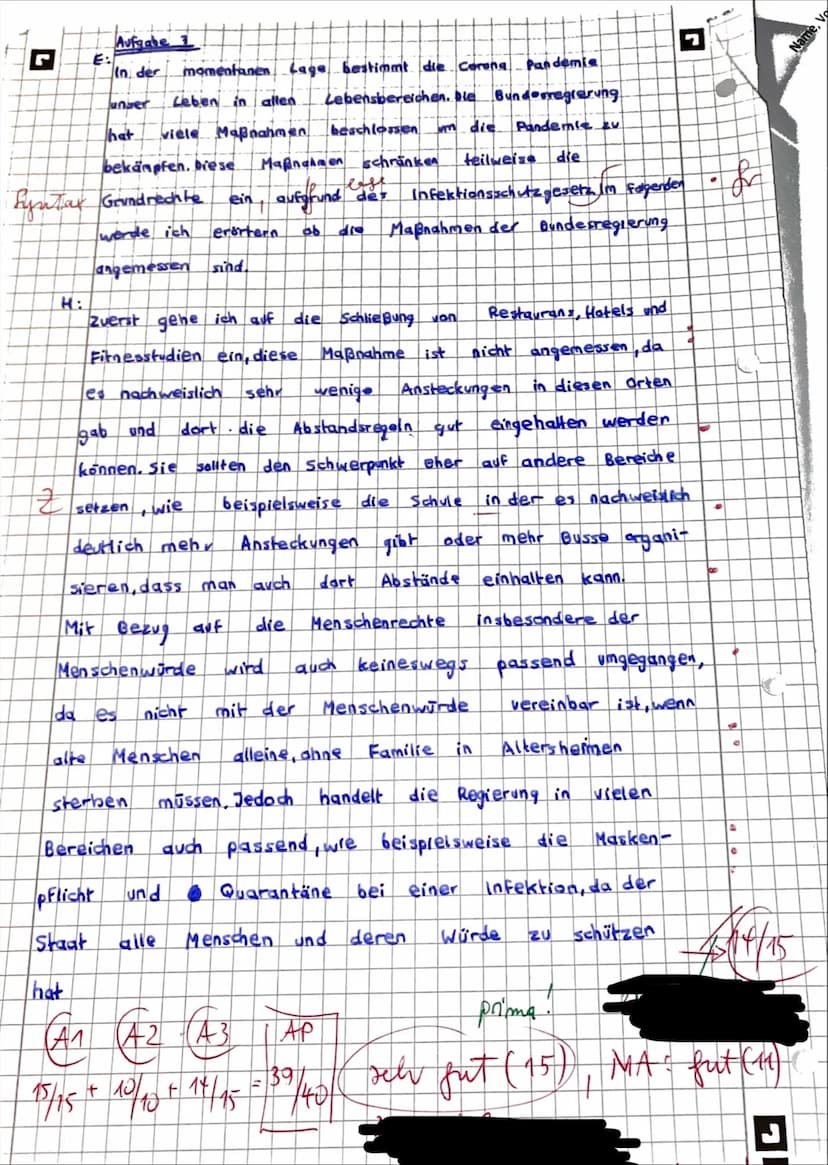 Name, Vo
Aufgabe 3
E:
In der momentanen Lage bestimmt die Corona Pandemie
unser Leben in allen Lebensbereichen. Die Bundesregierung
hat viele Maßnahmen beschlossen um die Pandemie zu
bekämpfen. Diese Maßnahmen schränken teilweise die
Syntax
Grundrechte ein, aufgrund des Infektionsschutzgesetz. Im folgenden
werde ich erörtern ob die Maßnahmen der Bundesregierung
angemessen sind.
H:
Zuerst gehe ich auf die Schließung von Restaurans, Hotels und
Fitnesstudien ein, diese Maßnahme ist nicht angemessen, da
es nachweislich sehr wenige Ansteckungen in diesen Orten
gab und dort die Abstandsregeln gut eingehalten werden
können. Sie sollten den Schwerpunkt eher auf andere Bereiche
Z
setzen, wie beispielsweise die Schule in der es nachweislich
deutlich mehr Ansteckungen gibt oder mehr Busse organi-
sieren, dass man auch dort Abstände einhalten kann.
Mit Bezug auf die Menschenrechte insbesondere der
Menschenwürde wird auch keineswegs passend umgegangen,
da es nicht mit der Menschenwürde vereinbar ist, wenn
alte Menschen alleine, ohne Familie in Altersheimen
sterben müssen. Jedoch handelt die Regierung in vielen
Bereichen auch passend, wie beispielsweise die Masken-
pflicht und Quarantäne bei einer Infektion, da der
Staat alle Menschen und deren Würde zu schützen
hat
14/15
prima!
A1 A2 A3 AP
15/15 + 10/10 + 14/15 = 39/40 sehr gut (15), MA: gut (11)